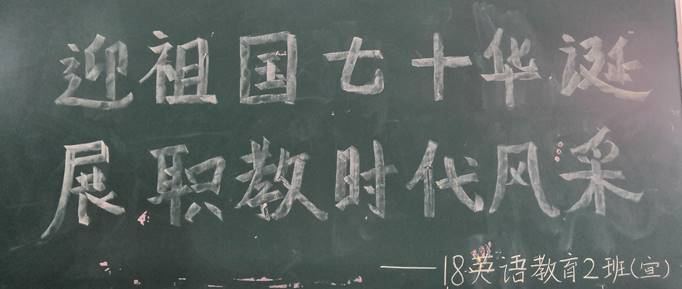 迎祖国七十华诞
展职教时代风采
——18英语教育2班(宣)